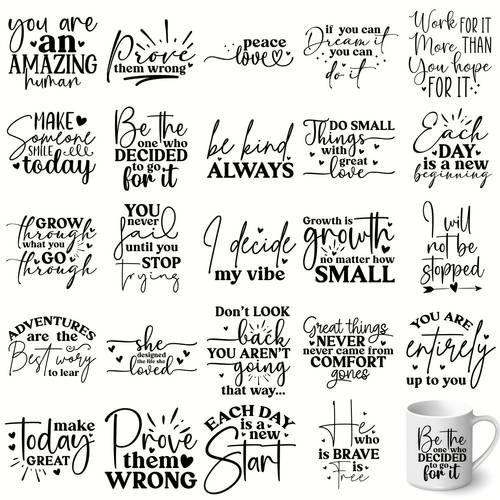 you are
an
AMAZING
human
Prove
them wrong
peace
love
if you can
Dream it
you can
do it
Work FOR IT
More THAN
You hope
FOR IT
MAKE
Someone
SMILE
today
Be the
one who
DECIDED
to go
for it
be kind
ALWAYS
DO SMALL
Things
with
great
love
Each
DAY
is a new
beginning
GROW
through
what you
GO
through
YOU
never
fail
until you
STOP
trying
I decide
my vibe
Growth is
growth
no matter how
SMALL
I will
not be
stopped
ADVENTURES
are the
Best wory
to lear
she
designed
the life she
loved
Don't LOOK
back
YOU AREN'T
going
that way...
Great things
NEVER
never came from
COMFORT
gones
YOU ARE
entirely
up to you
make
Today
GREAT
Prove
them
WRONG
EACH DAY
is a new
Start
He
who
is BRAVE
is
Free
Be the
one who
DECIDED
to go
for it